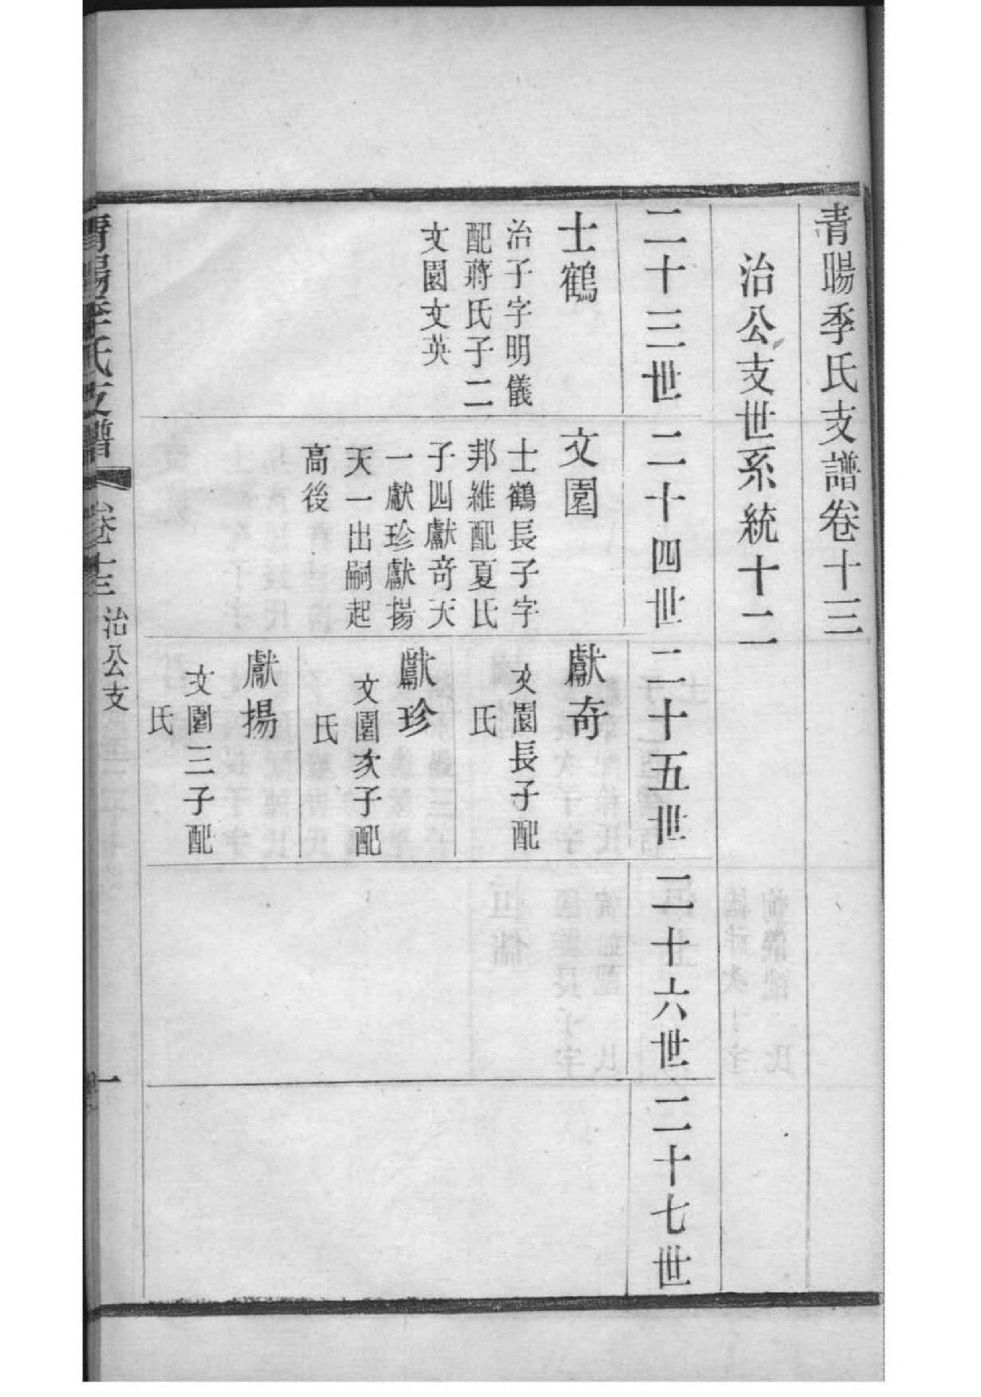 青暘季氏支譜卷十三
治公支世系統十二
二十三世
士鶴
治子字明儀
配蔣氏子二
文園文英
二十四世
文園
士鶴長子字
邦維配夏氏
子四獻奇天
一獻珍獻揚
天一出嗣起
高後
二十五世
獻奇
文園長子配
氏
獻珍
文園次子配
氏
獻揚
文園三子配
氏
二十六世
二十七世
青暘季氏支譜
卷十三
治公支
一